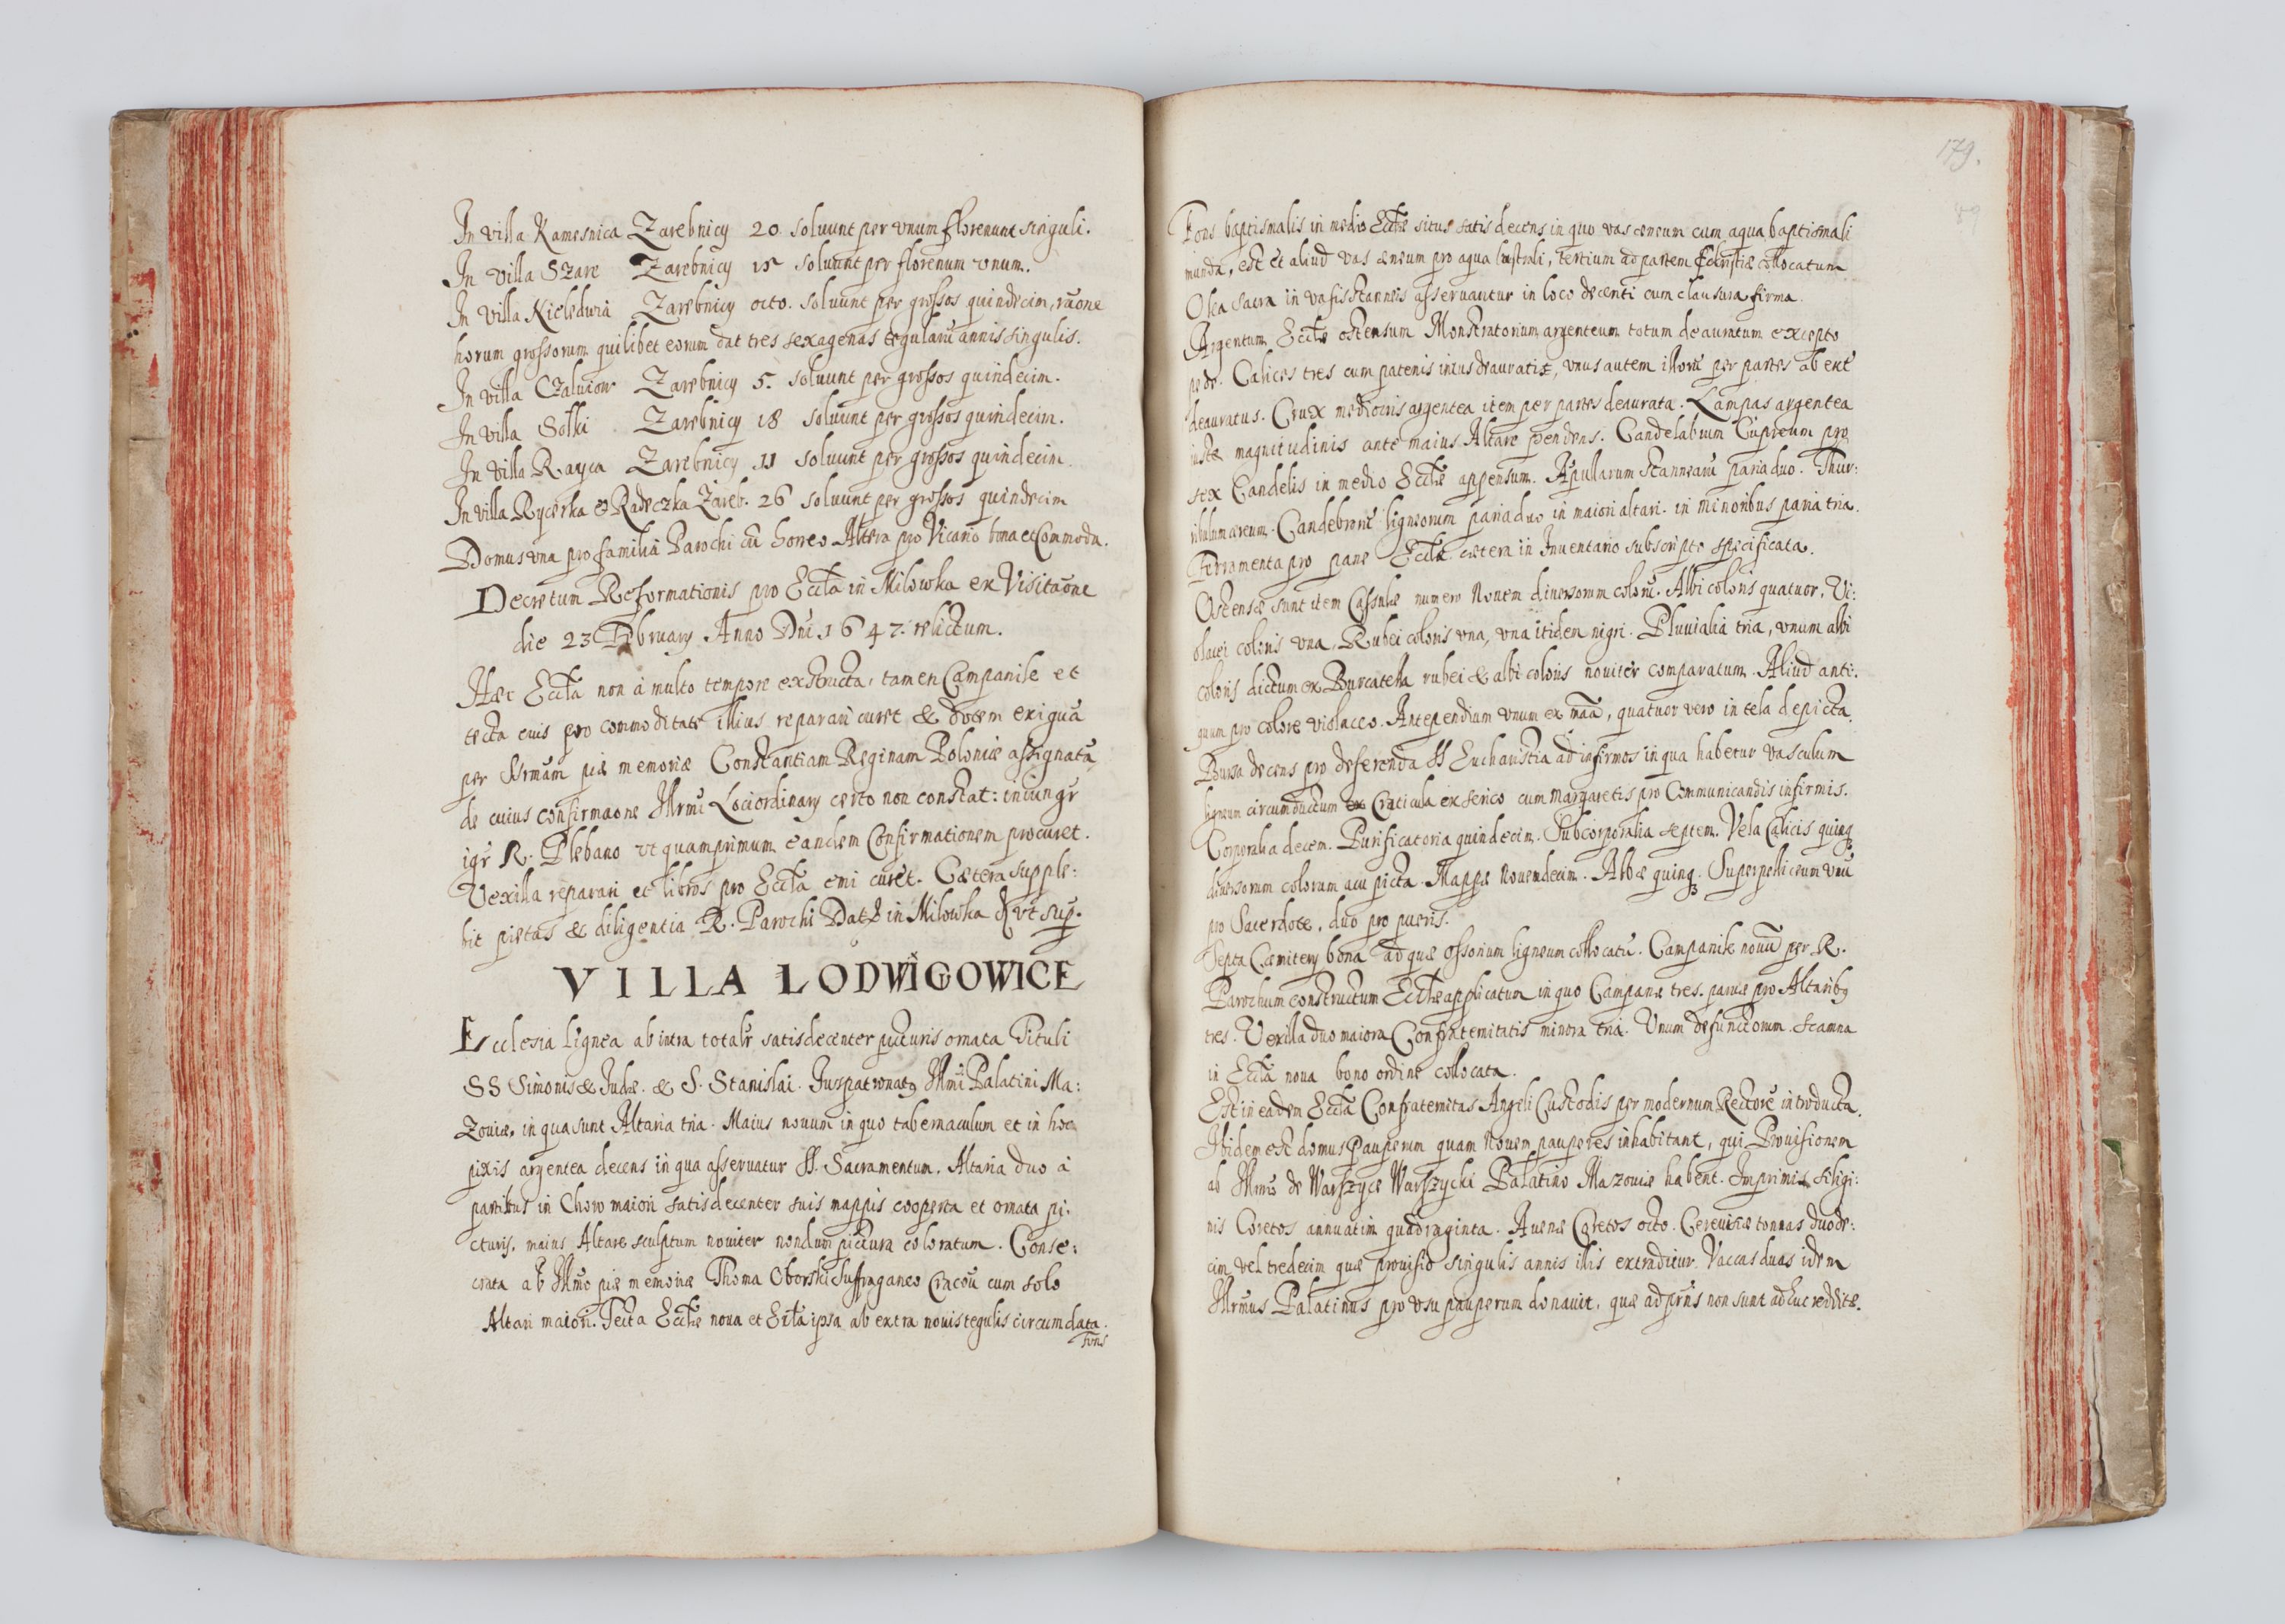 In villa Kamesnica Zarebnicy 20 soluunt per vnum florenum singuli.
In villa Szare Zarebnicy 15 soluunt per florenum vnum.
In villa Nieledwia Zarebnicy octo. soluunt per grossos quindecim, raõne
horum grossorum quilibet eorum dat tres sexagenas tegularũ annis singulis.
In villa Zarebnicy 5. soluunt per grossos quindecim.
In villa Solki Zarebnicy 18 soluunt per grossos quindecim.
In villa Rayca Zarebnicy 11 soluunt per grossos quindecim.
In villa Rycerka & Radeczka Zareb. 26 soluunt per grossos quindecim
Domus vna pro familia Parochi cũ horreo Altera pro Vicario bona et Commoda.
Decretum Reformationis pro Eccla in Milowka ex Visitaõne
die 23 February Anno Dni 1647. relictum.
Hæc Eccla non à multo tempore exstructa, tamen Campanile et
tecta eius pro commoditate illius reparari curet & dotem exiguã
per Srmam piæ memoriæ Constantiam Reginam Poloniæ assignatã,
de cuius confirmaõne Illrmi Loci ordinary certo non constat: iniungr̃
igr̃ R. Plebano vt quamprimum eandem Confirmationem procuret.
Vexilla reparari et libros pro Eccla emi curet. Cætera supple:
bit pietas & diligentia R. Parochi Dat in Milowka vt sup.
VILLA ŁODWIGOWICE
Ecclesia Lignea ab intra totalr̃ satis decenter picturis ornata Tituli
SS Simonis & Judæ. & S. Stanislai. Juspatronatq Illmi Palatini Ma:
zouiæ, in qua sunt Altaria tria. Maius nouum in quo tabernaculum et in hoc
pixis argentea decens in qua asseruatur SS. Sacramentum. Altaria duo à
partibus in Choro maiori satis decenter suis mappis cooperta et ornata pi:
cturis. maius Altare sculptum nouiter nondum pictura coloratum. Conse:
crata ab Illmo piæ memoriæ Thoma Oborski Suffraganeo Cracoũ cum solo
Altari maiori. Tecta Ecclæ noua et Eccla ipsa ab extra nouis tegulis circumdata.
Fons
179.
Fons baptismalis in medio Ecclæ situs satis decens in quo vas æneum cum aqua baptismali
munda, est et aliud vas æneum pro aqua lustrali, tertium ad partem collocatum
Olea sacra in vasis stanneis asseruantur in loco decenti cum clausura firma.
Argentum Ecclæ ostensum Monstratorium argenteum totum deauratum excepto
pede. Calices tres cum patenis intus deauratis, vnus autem illorũ per partes ab ext
deauratus. Crux mediocris argentea item per partes deaurata. Lampas argentea
iustæ magnitudinis ante maius Altare pendens. Candelabrum Cupreum pro
sex Candelis in medio Ecclæ appensum. Apullarum stannearũ paria duo. Thur:
ribulum æreum. Candebrorũ ligneorum paria duo in maiori altari. in minoribus paria tria.
Ferramenta pro pane Ecclæ cætera in Inuentario subscripto specificata.
Ostensæ sunt item Cassulæ numero Nouem diuersorum colorũ. Albi coloris quatuor, Vi:
olacei coloris vna, Rubei coloris vna, vna itidem nigri. Pluuialia tria, vnum albi
coloris dictum ex Burcatella rubei & albi coloris nouiter comparatum. Aliud anti:
quum pro colore violaceo. Antependium vnum ex mãa, quatuor vero in tela depicta.
Bursa decens pro deferenda SS Eucharistia ad infirmos in qua habetur vasculum
ligneum circumductum Craticula ex serico cum Margaretis pro Communicandis infirmis.
Corporalia decem. Purificatoria quindecim. Subcorporalia septem. Vela Calicis quinq
diuersorum colorum acu picta. Mappæ Nouemdecim. Albæ quinq. Superpelliceum vnũ
pro Sacerdote, duo pro pueris.
Septa Cæmitery bona ad quæ ossorium ligneum collocatũ. Campanile nouũ per R.
Parochum constructum Ecclæ applicatum in quo Campanæ tres. paruæ pro Altaribq
tres. Vexilla duo maiora Confraternitatis minora tria. Vnum defunctorum. Scamna
in Eccla noua bono ordine collocata.
Est in eadem Eccla Confraternitas Angeli Custodis per modernum Rectorẽ introducta.
Ibidem est domus Pauperum quam Nouem pauperes inhabitant, qui Prouisionem
ab Illmo de Warszyce Warszycki Palatino Mazouiæ habent. Imprimis siligi:
nis Coretos annuatim quadraginta. Auenæ Coretos octo. Cereuisiæ tonnas duode:
cim vel tredecim quæ prouisio singulis annis illis extraditur. Vaccas duas idem
Illrmus Palatinus pro vsu pauperum donauit, quæ ad prñs non sunt adhuc redditæ.